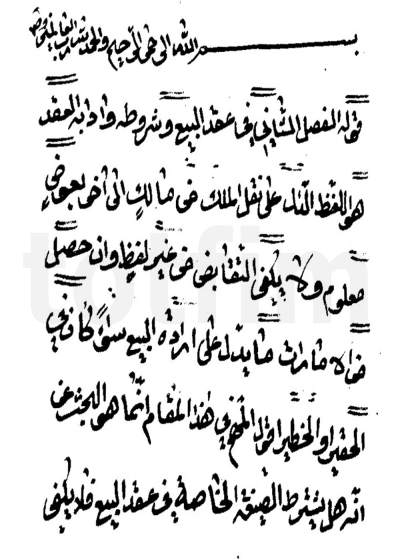 بسم الله الرحمن الرحيم والحمد لله رب العالمين
قوله الفصل الثاني في عقد البيع وشروطه وادابه العقد
هو اللفظ الدال على نقل الملك من مالك الى اخر بعوض
معلوم ولا يكفى التقابض من غير لفظ وان حصل
من الامارات ما يدل على ارادة البيع سواء كان في
الحقير او الخطير اقول المهم في هذا المقام انما هو البحث عن
انه هل يشترط الصيغة الخاصة في عقد البيع فلا يكفى
totfim